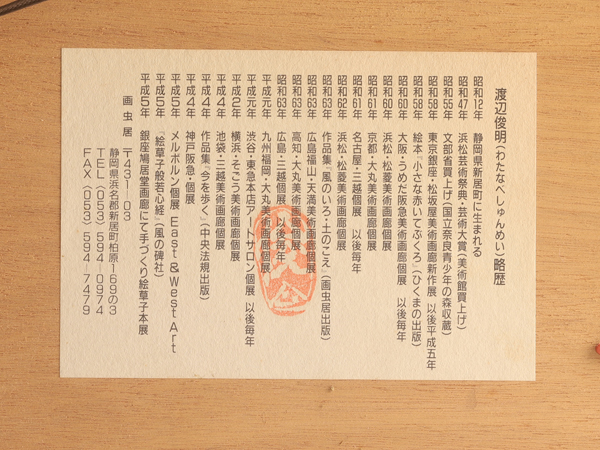 渡辺俊明(わたなべしゅんめい)略歴
昭和12年 静岡県新居町に生まれる
昭和47年 浜松芸術祭典・芸術大賞(美術館買上げ)
昭和55年 文部省買上げ(国立奈良青少年の森収蔵)
昭和58年 東京銀座・松坂屋美術画廊新作展 以後平成五年
昭和58年 絵本・小さな赤いてぶくろ(ひくまの出版)
昭和60年 大阪・うめだ阪急美術画廊個展 以後毎年
昭和60年 浜松・松菱美術画廊個展
昭和61年 京都・大丸美術画廊個展
昭和61年 名古屋・三越個展 以後毎年
昭和62年 浜松・松菱美術画廊個展
昭和63年 作品集『風のいろ・土のこえ』(画虫居出版)
昭和63年 広島福山・天満美術画廊個展
昭和63年 高知・大丸美術画廊個展
昭和63年 広島・三越個展 以後毎年
平成元年 九州福岡・大丸美術画廊個展
平成元年 渋谷・東急本店アートサロン個展 以後毎年
平成2年 横浜・そごう美術画廊個展
平成4年 池袋・三越美術画廊個展
平成4年 作品集『今を歩く』(中央法規出版)
平成4年 神戸阪急・個展
平成5年 メルボルン個展 East & West Art
平成5年 『絵草子般若心経』(風の碑社)
平成5年 銀座鳩居堂画廊にて手づくり絵草子本展
画虫居 〒431-03
静岡県浜名郡新居町柏原169の3
TEL(053)594-0974
FAX(053)594-7479